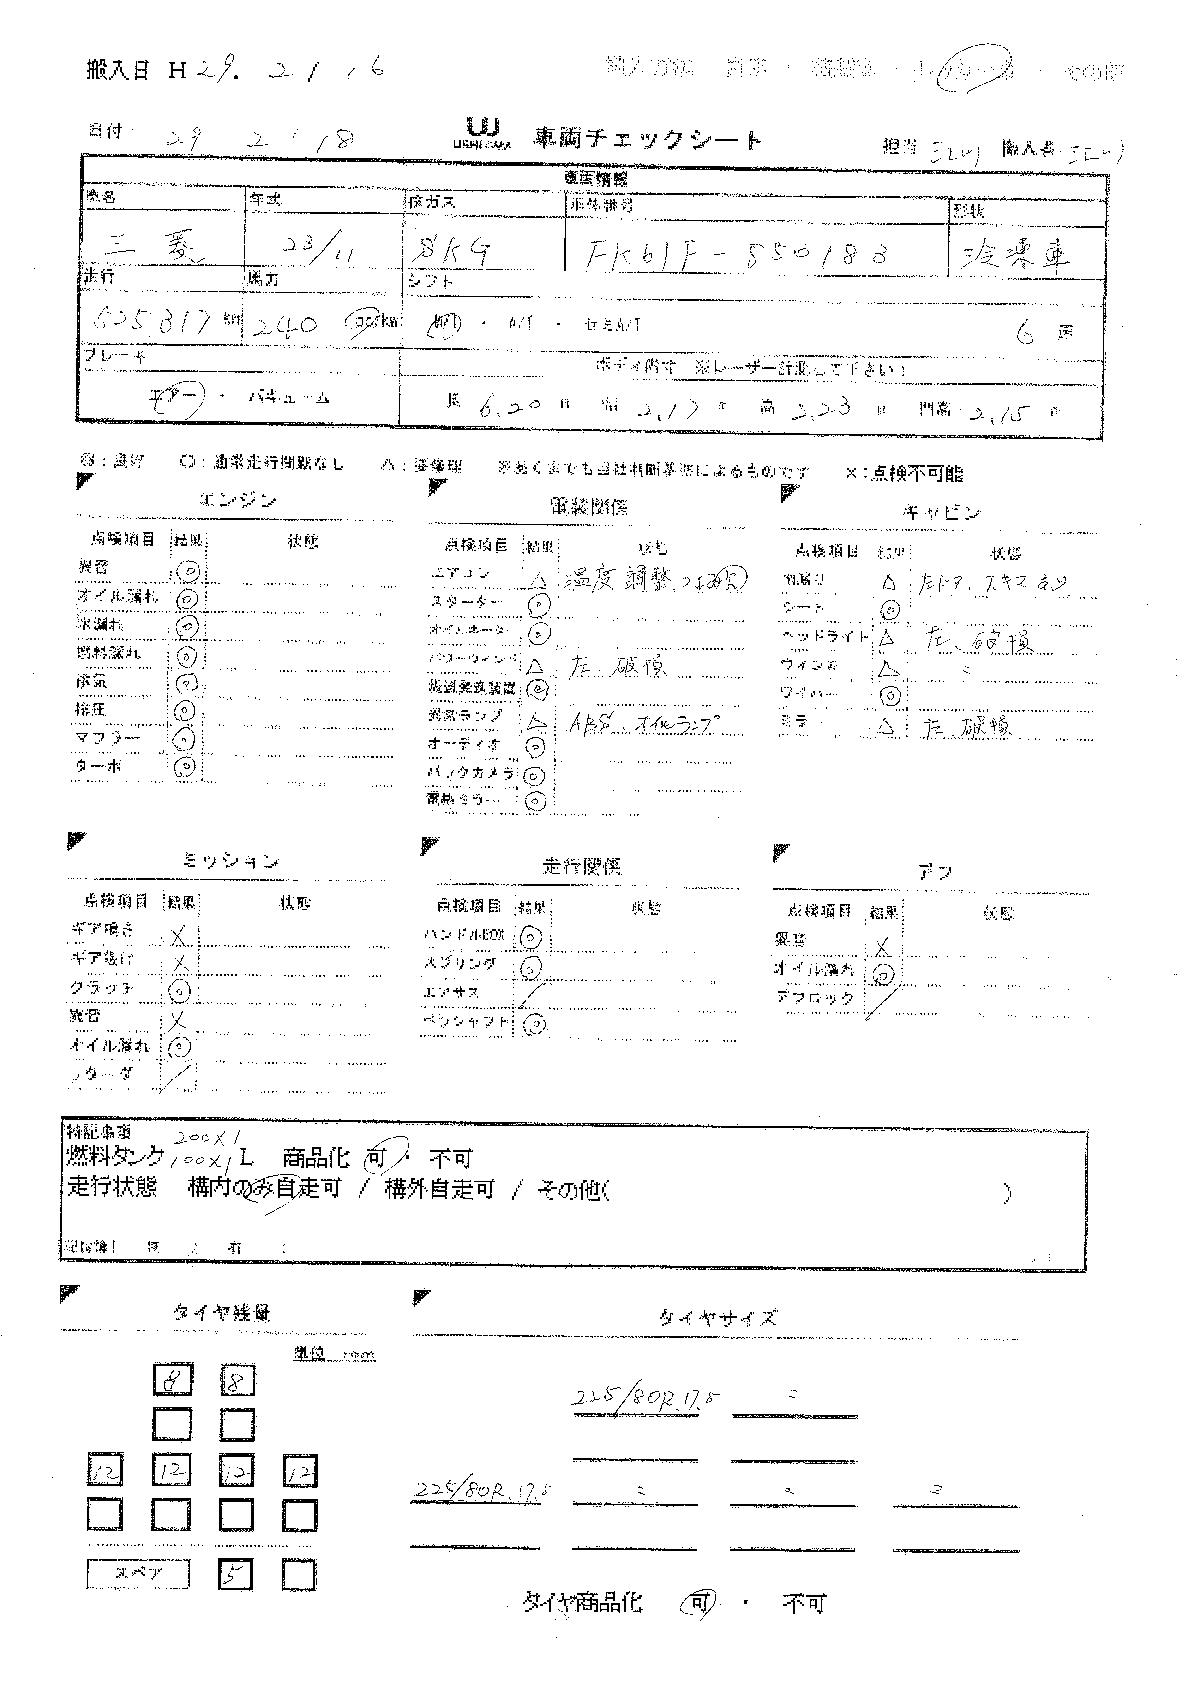 搬入日 H29. 2/16
搬入方法 自走 ・ 積載車 ・ トレーラー ・ その他
日付 29 2/18 車両チェックシート 担当 搬入者
車両情報
車名 年式 排ガス 車体番号 形状
三菱 23/11 SKG FK61F-550183 冷凍車
走行 馬力 シフト
625317km 240 ps/kw M/T ・ A/T ・ セミA/T 6 速
ブレーキ ボディ内寸 ※レーザー計測して下さい!
エアー ・ バキューム 長 6.20 m 幅 2.17 m 高 2.23 m 門高 2.15 m
◎:良好 〇:通常走行問題なし △:要修理 ※あくまでも当社判断基準によるものです ×:点検不可能
エンジン
点検項目 結果 状態
異音 ◎
オイル漏れ ◎
水漏れ ◎
燃料漏れ ◎
排気 ◎
排圧 ◎
マフラー ◎
ターボ ◎
電装関係
点検項目 結果 状態
エアコン △ 温度調整
スターター ◎
オイルネーター ◎
パワーウィンド △ 左、破損
排気装置 ◎
異常ランプ △ ABS、オイルランプ
オーディオ ◎
バックカメラ ◎
電格ミラー ◎
キャビン
点検項目 結果 状態
内張り △ 左ドア、スキマ
シート ◎
ヘッドライト △ 左、破損
ウィンカ △ 〃
ワイパー ◎
ミラー △ 左、破損
ミッション
点検項目 結果 状態
ギア鳴き ×
ギア抜け ×
クラッチ ◎
異音 ×
オイル漏れ ◎
リターダ ／
走行関係
点検項目 結果 状態
ハンドルBOX ◎
スプリング ◎
エアサス ／
ペラシャフト ◎
デフ
点検項目 結果 状態
異音 ×
オイル漏れ ◎
デフロック ／
特記事項
燃料タンク 200×1 100×1 L 商品化 可 ・ 不可
走行状態 構内のみ自走可 / 構外自走可 / その他( )
記録簿 無 / 有
タイヤ残量
単位 mm
8 8
12 12 12 12
スペア 5
タイヤサイズ
225/80R.17.5 〃
225/80R.17.5 〃 〃 〃
タイヤ商品化 可 ・ 不可